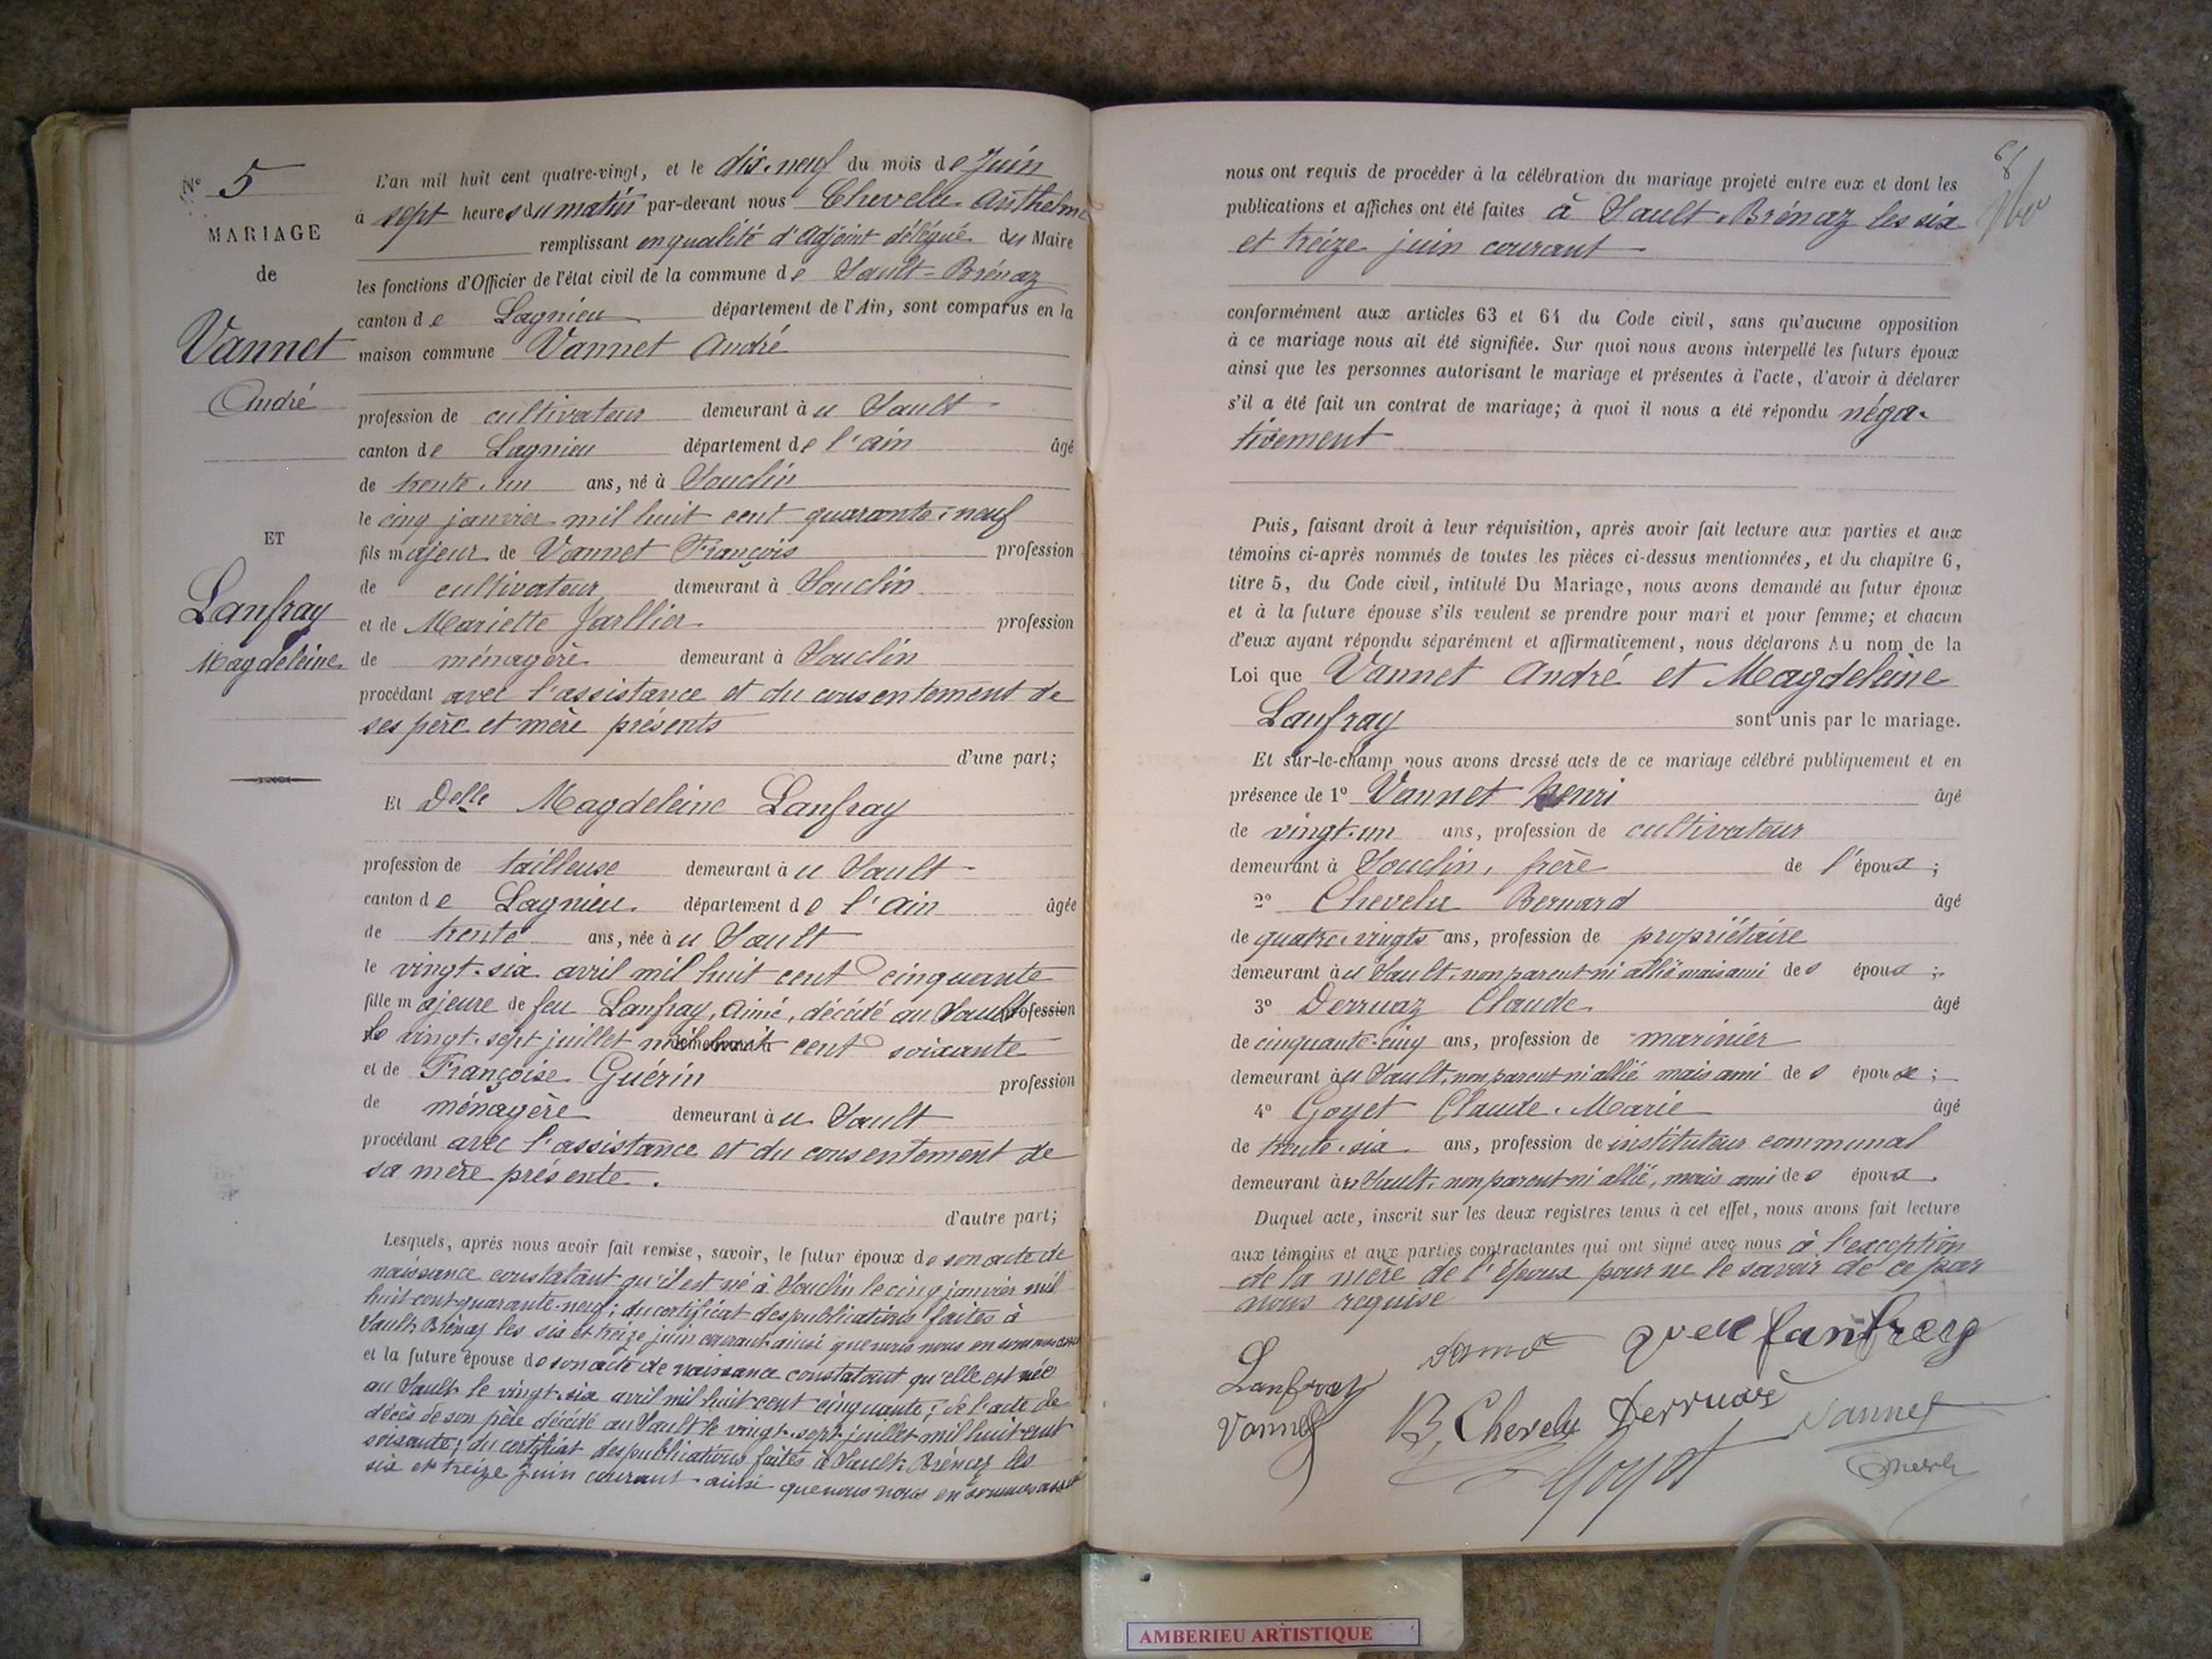 N° 5
MARIAGE
de
Vannet
André
ET
Lanfray
Magdeleine
L'an mil huit cent quatre-vingt, et le dix-neuf du mois de Juin
à sept heures du matin par-devant nous Chevelu Anthelme
remplissant en qualité d'Adjoint délégué du Maire
les fonctions d'Officier de l'état civil de la commune de Sault-Brénaz
canton de Lagnieu département de l'Ain, sont comparus en la
maison commune Vannet André
profession de cultivateur demeurant à u Sault
canton de Lagnieu département de l'ain âgé
de trente-un ans, né à Souclin
le cinq janvier mil huit cent quarante-neuf
fils majeur de Vannet François profession
de cultivateur demeurant à Souclin
et de Mariette Jarllier profession
de ménagère demeurant à Souclin
procédant avec l'assistance et du consentement de
ses père et mère présents
d'une part;
Et Delle Magdeleine Lanfray
profession de tailleuse demeurant à u Sault
canton de Lagnieu département de l'ain âgée
de trente ans, née à u Sault
le vingt-six avril mil huit cent cinquante
fille majeure de feu Lanfray, Aimé, décédé au Sault profession
le vingt-sept juillet mil huit cent soixante
et de Françoise Guérin profession
de ménagère demeurant à u Sault
procédant avec l'assistance et du consentement de
sa mère présente.
d'autre part;
Lesquels, après nous avoir fait remise, savoir, le futur époux de son acte de
naissance constatant qu'il est né à Souclin le cinq janvier mil
huit cent quarante-neuf; du certificat des publications faites à
Sault-Brénaz les six et treize juin courant ainsi que nous nous en sommes
et la future épouse de son acte de naissance constatant qu'elle est née
au Sault le vingt-six avril mil huit cent cinquante; de l'acte de
décès de son père décédé au Sault le vingt-sept juillet mil huit cent
soixante; du certificat des publications faites à Sault-Brénaz les
six et treize juin courant ainsi que nous nous en sommes
nous ont requis de procéder à la célébration du mariage projeté entre eux et dont les
publications et affiches ont été faites à Sault-Brénaz les six
et treize juin courant
conformément aux articles 63 et 64 du Code civil, sans qu'aucune opposition
à ce mariage nous ait été signifiée. Sur quoi nous avons interpellé les futurs époux
ainsi que les personnes autorisant le mariage et présentes à l'acte, d'avoir à déclarer
s'il a été fait un contrat de mariage; à quoi il nous a été répondu néga-
tivement
Puis, faisant droit à leur réquisition, après avoir fait lecture aux parties et aux
témoins ci-après nommés de toutes les pièces ci-dessus mentionnées, et du chapitre 6,
titre 5, du Code civil, intitulé Du Mariage, nous avons demandé au futur époux
et à la future épouse s'ils veulent se prendre pour mari et pour femme; et chacun
d'eux ayant répondu séparément et affirmativement, nous déclarons Au nom de la
Loi que Vannet André et Magdeleine
Lanfray sont unis par le mariage.
Et sur-le-champ nous avons dressé acte de ce mariage célébré publiquement et en
présence de 1° Vannet henri âgé
de vingt-un ans, profession de cultivateur
demeurant à Souclin, frère de l'époux;
2° Chevelu Bernard âgé
de quatre-vingts ans, profession de propriétaire
demeurant à u Sault, non parent ni allié mais ami des époux;
3° Derruaz Claude âgé
de cinquante-cinq ans, profession de marinier
demeurant à u Sault, non parent ni allié mais ami des époux;
4° Goyet Claude-Marie âgé
de trente-six ans, profession de instituteur communal
demeurant à u Sault, non parent ni allié, mais ami des époux.
Duquel acte, inscrit sur les deux registres tenus à cet effet, nous avons fait lecture
aux témoins et aux parties contractantes qui ont signé avec nous à l'exception
de la mère de l'époux pour ne le savoir de ce par
nous requise
Lanfray
Vannet B, Chevelu Derruaz Vannet
Goyet
AMBERIEU ARTISTIQUE